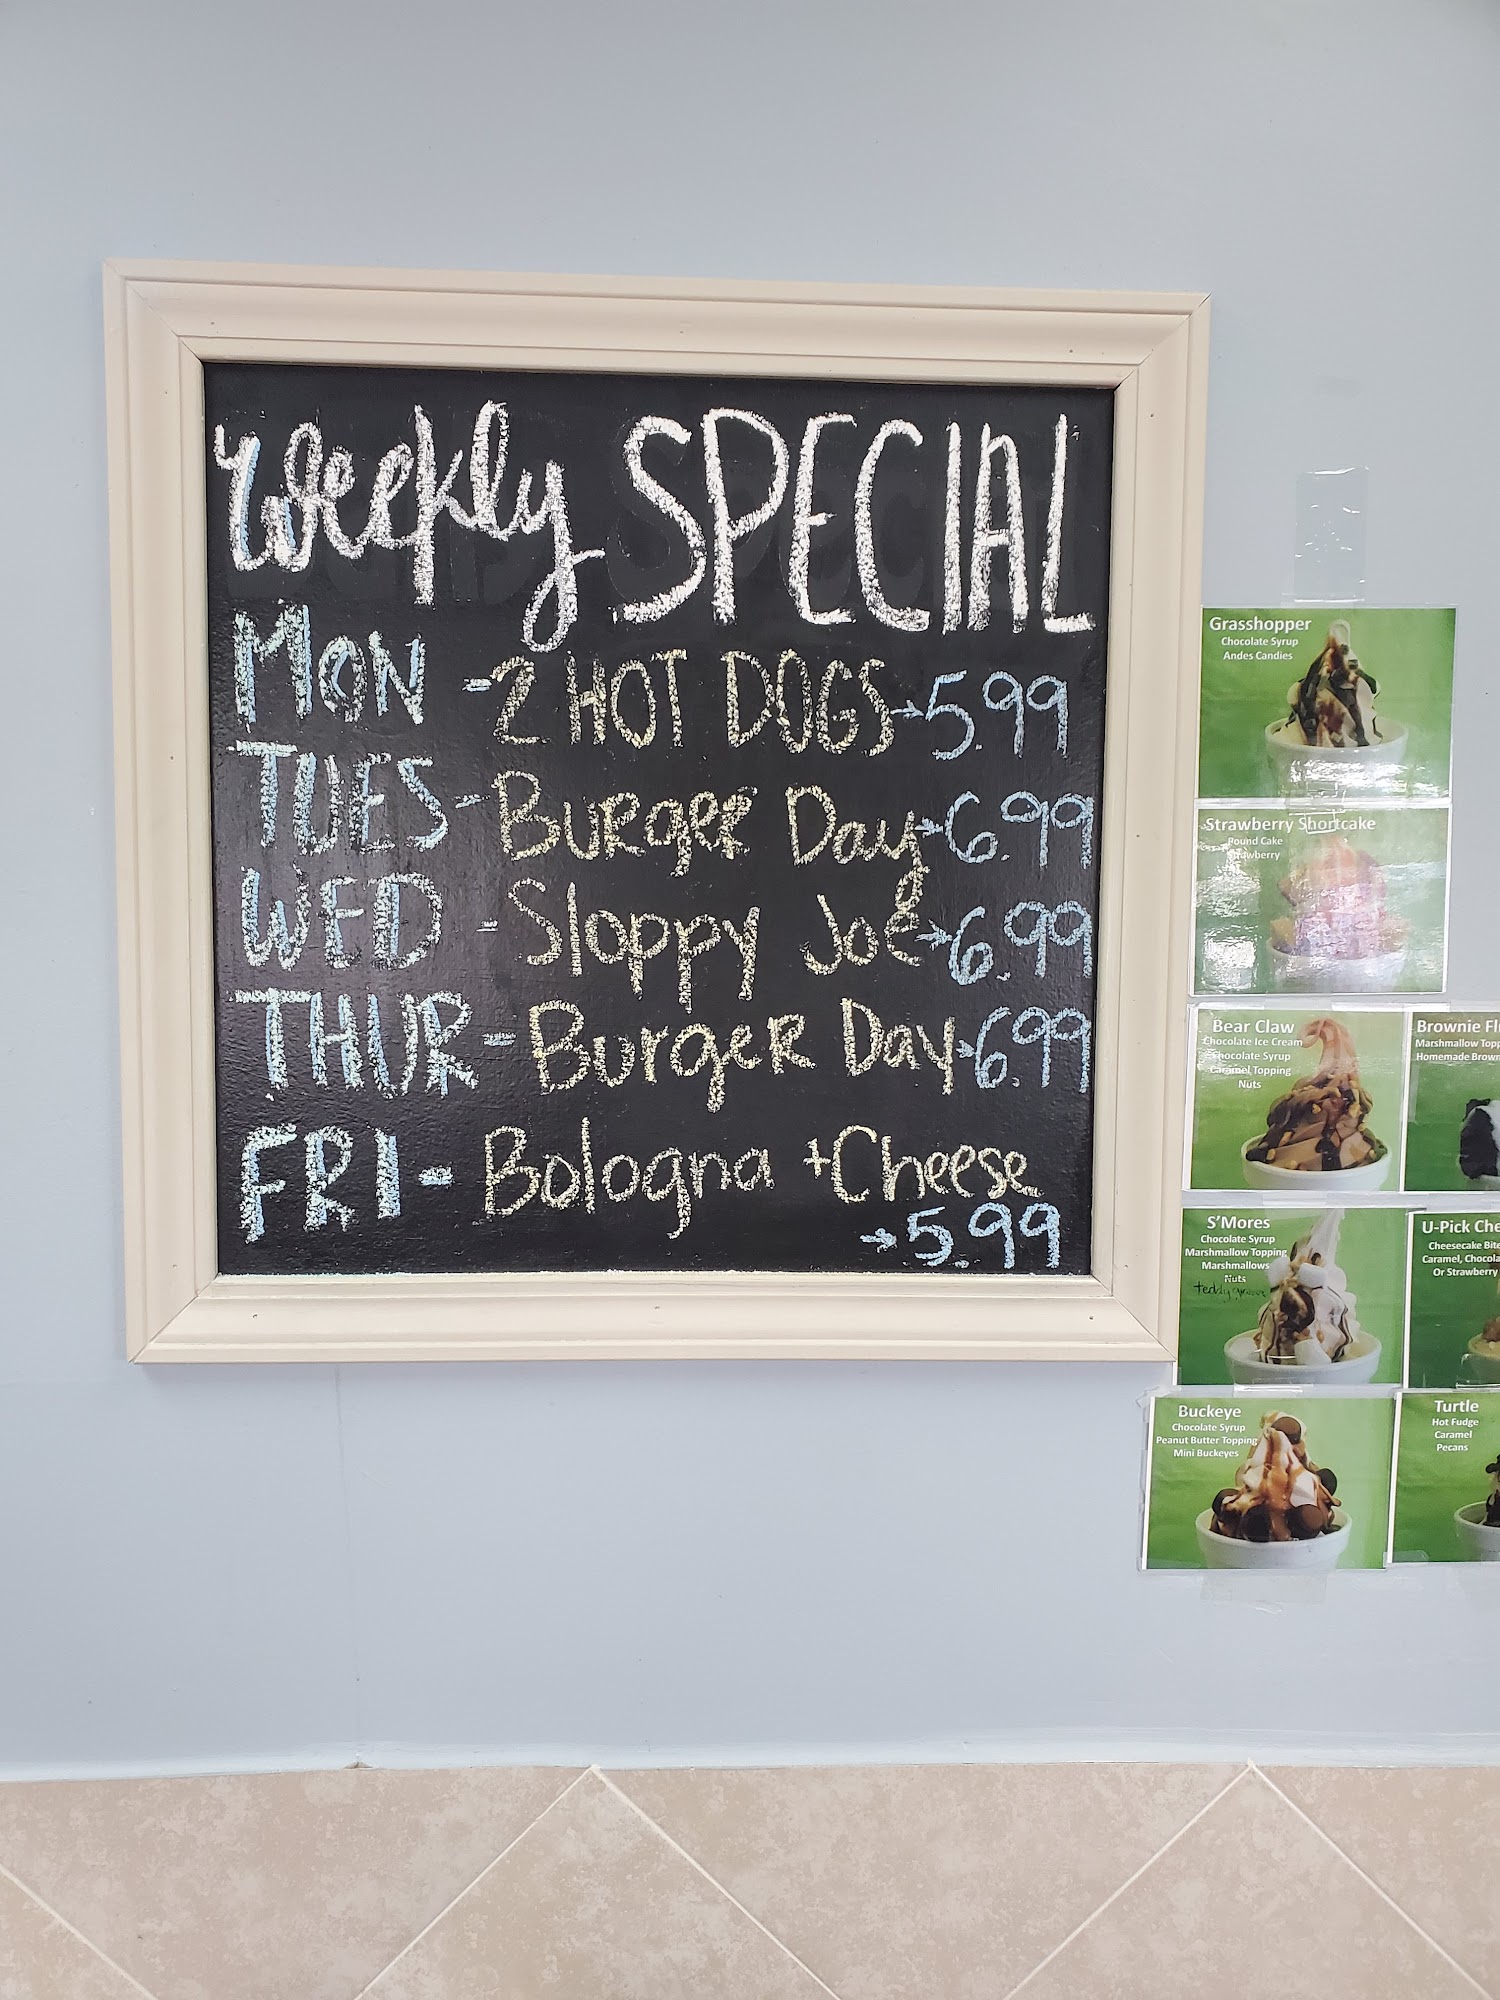 Weekly SPECIAL
MON - 2 HOT DOGS → 5.99
TUES - Burger Day → 6.99
WED - Sloppy Joe → 6.99
THUR - Burger Day → 6.99
FRI - Bologna + Cheese
→ 5.99
Grasshopper
Chocolate Syrup
Andes Candies
Strawberry Shortcake
Pound Cake
Strawberry
Bear Claw
Chocolate Ice Cream
Chocolate Syrup
Caramel Topping
Nuts
Brownie
Marshmallow
Homemade
S'Mores
Chocolate Syrup
Marshmallow Topping
Marshmallows
Nuts
teddy
U-Pick
Cheesecake
Caramel,
Or Strawberry
Buckeye
Chocolate Syrup
Peanut Butter Topping
Mini Buckeyes
Turtle
Hot Fudge
Caramel
Pecans